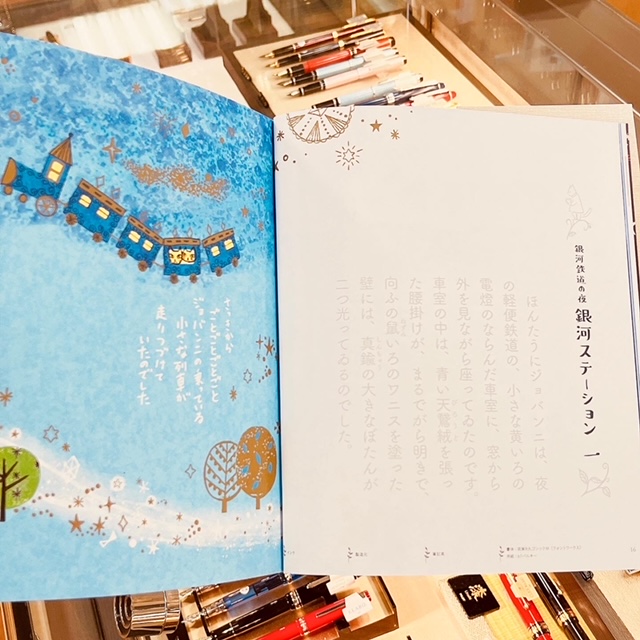 銀河鉄道の夜
銀河ステーション 一
ほんたうにジョバンニは、夜
の軽便鉄道の、小さな黄いろの
電燈のならんだ車室に、窓から
外を見ながら座ってゐたのです。
車室の中は、青い天鵞絨を張っ
た腰掛けが、まるでがら明きで、
向ふの鼠いろのワニスを塗った
壁には、真鍮の大きなぼたんが
二つ光ってゐるのでした。
さっきから
ごとごとごとごと
ジョバンニの乗っている
小さな列車が
走りつづけて
いたのでした